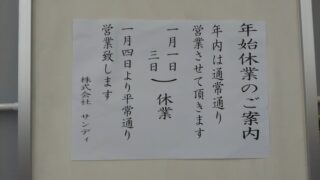 年始休業のご案内
年内は通常通り
営業させて頂きます
一月一日
三日
）休業
一月四日より平常通り
営業致します
株式会社 サンディ